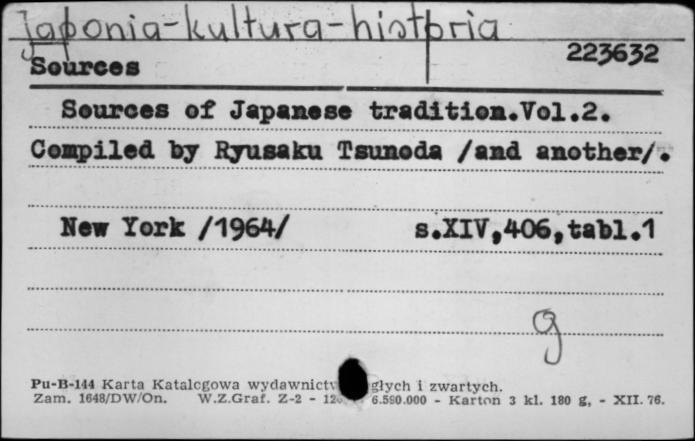 Japonia-kultura-historia
223632
Sources
Sources of Japanese tradition.Vol.2.
Compiled by Ryusaku Tsunoda /and another/.
New York /1964/ s.XIV,406,tabl.1
g
Pu-B-144 Karta Katalogowa wydawnictw głych i zwartych.
Zam. 1648/DW/On. W.Z.Graf. Z-2 - 12 6.590.000 - Karton 3 kl. 180 g, - XII. 76.